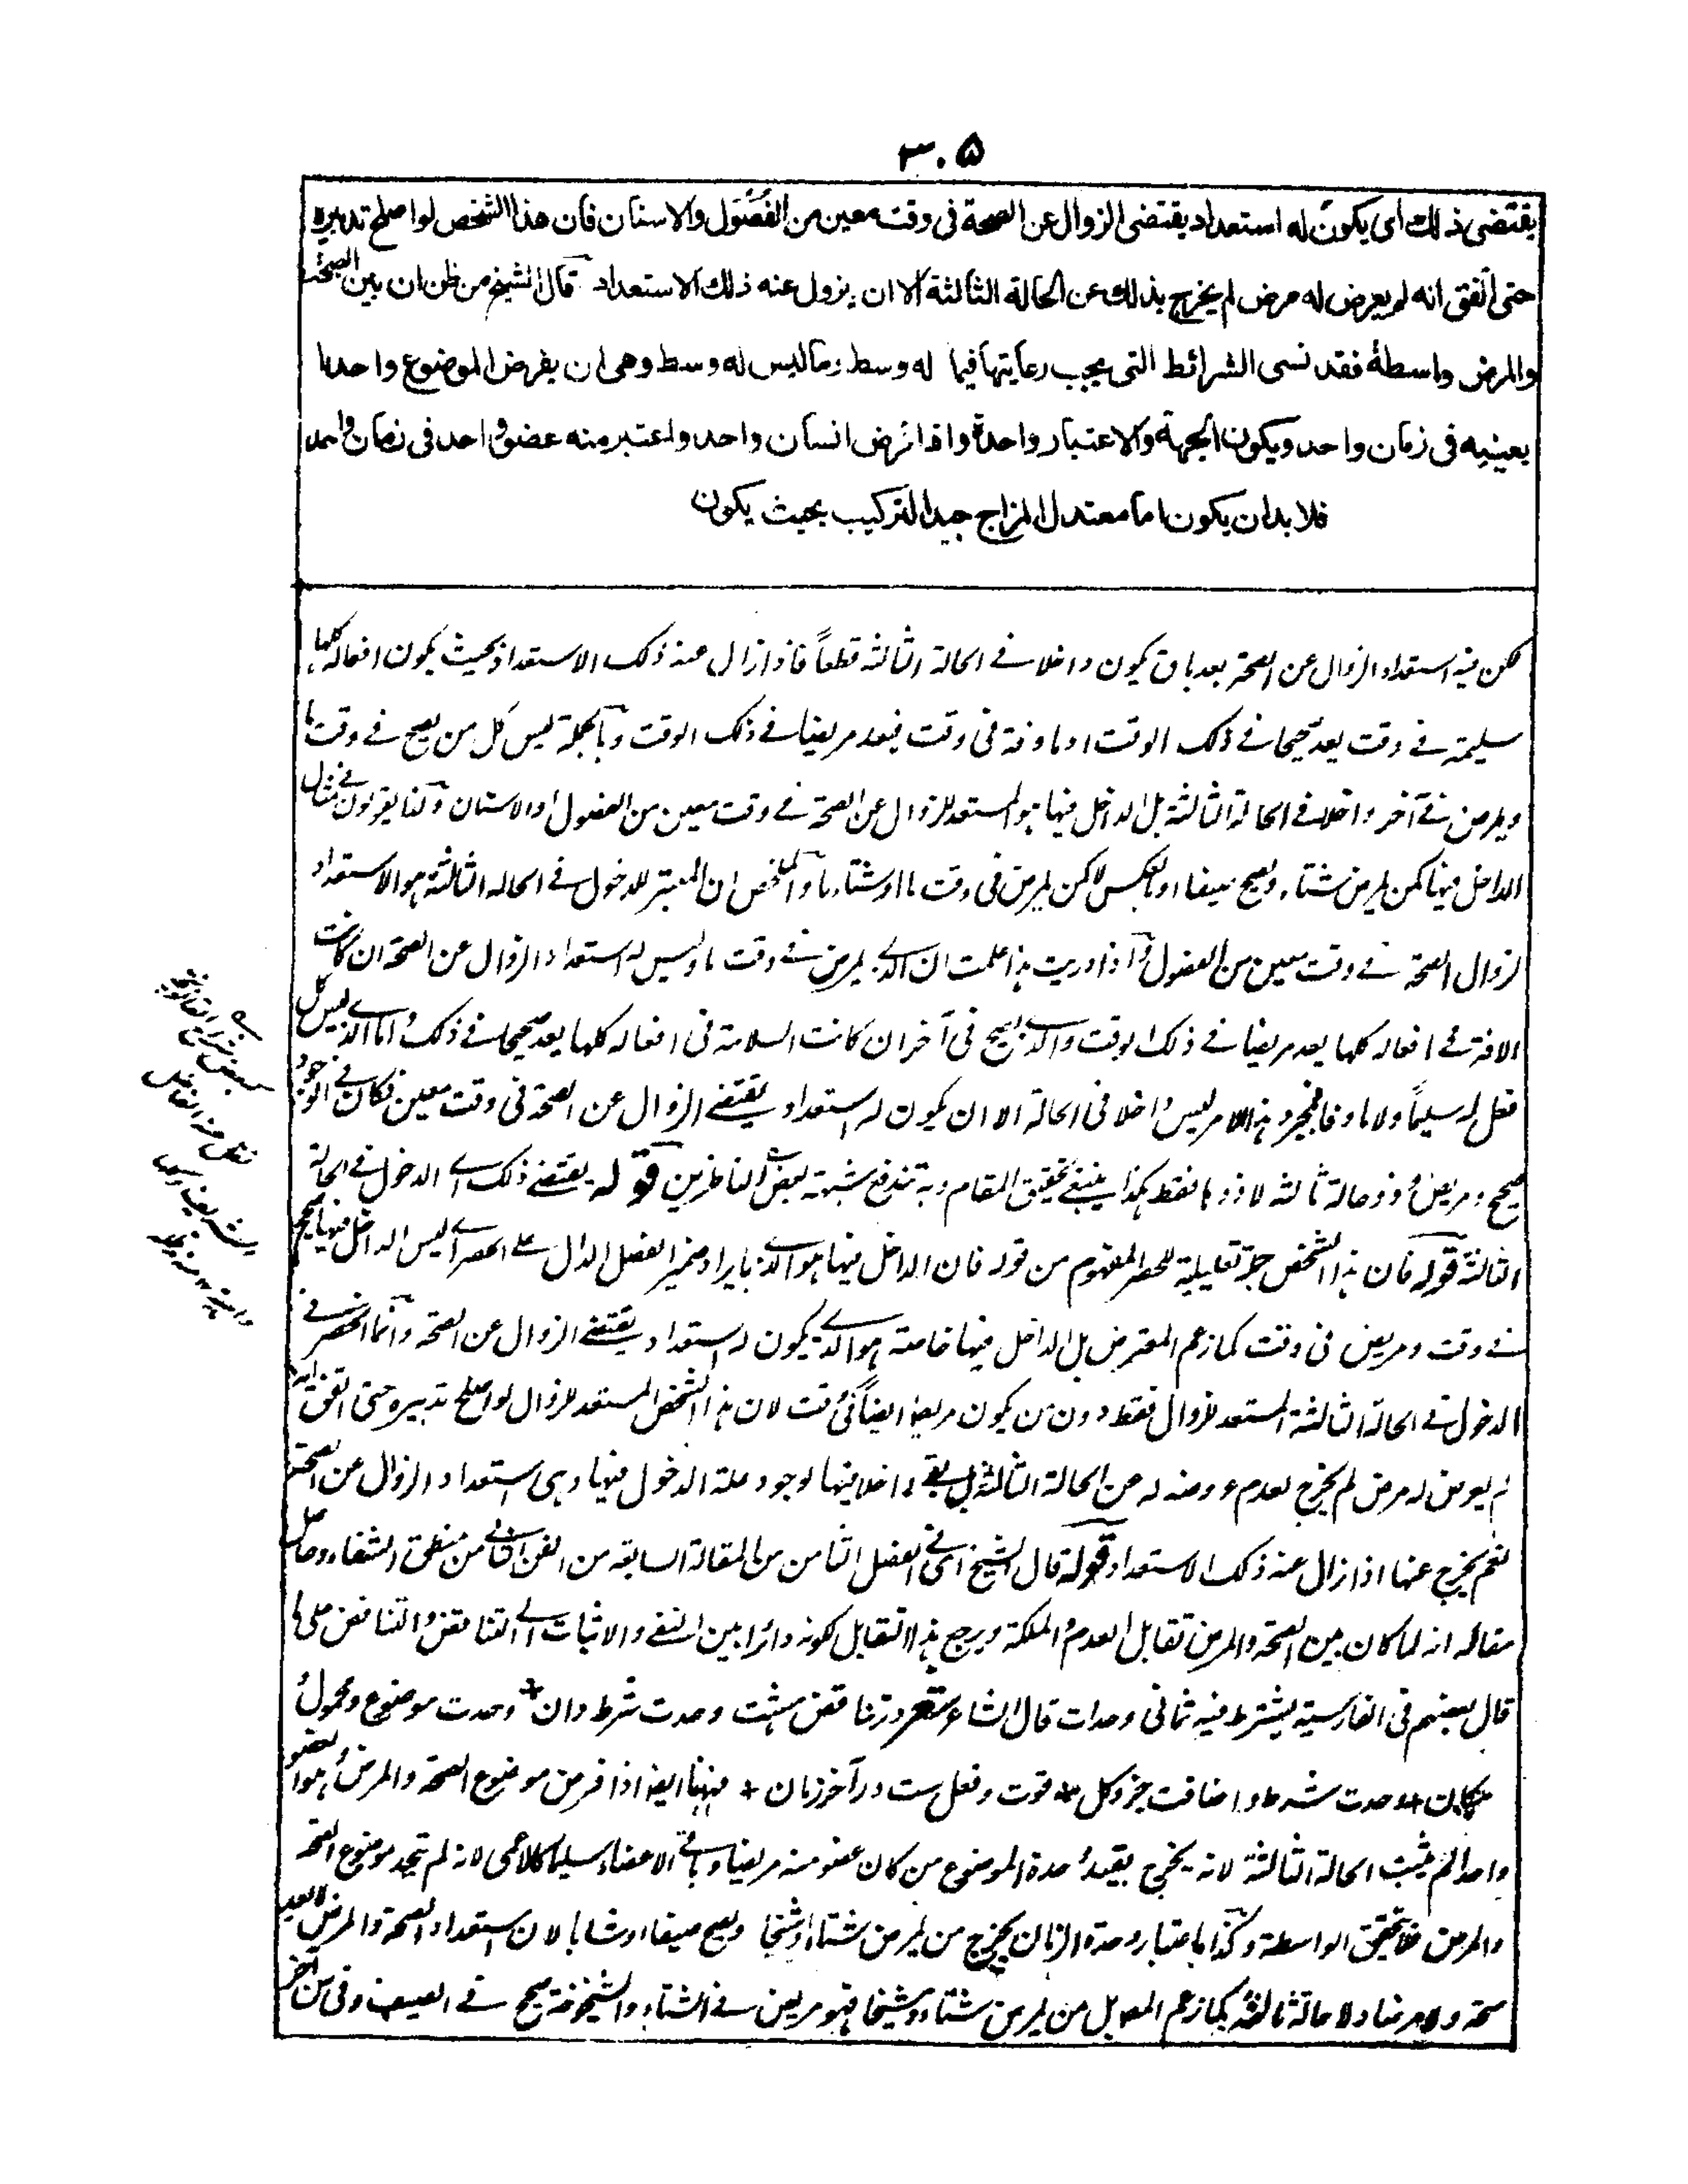 ۳۰۵
يقتضى ذلك اى يكون له استعداد يقتضى الزوال عن الصحة فى وقت معين من الفصول والاسنان فان هذا الشخص لو اصلح تدبيره
حتى اتفق انه لم يعرض له مرض لم يخرج بذلك عن الحالة الثالثة الا ان يزول عنه ذلك الاستعداد قال الشيخ من ظن ان بين الصحة
والمرض واسطة فقد نسى الشرائط التى يجب رعايتها فيما له وسط وما ليس له وسط وهى ان يفرض الموضوع واحدا
بعينه فى زمان واحد ويكون الجهة والاعتبار واحدة واذا فرض انسان واحد واعتبر منه عضو واحد فى زمان واحد
فلا بد ان يكون اما معتدل المزاج جيد التركيب بحيث يكون
لكن فيه استعداد الزوال عن الصحة بعد باق يكون داخلا فے الحالة الثالثة قطعاً فاذا زال عنه ذلك الاستعداد بحيث يكون افعاله كلها
سليمة فے وقت يعد صحيحا فے ذلك الوقت او ماوفة فى وقت فيعد مريضا فے ذلك الوقت وبالجملة ليس كل من يصح فے وقت ما
ويمرض فے آخر داخلا فے الحالة الثالثة بل الداخل فيها هو المستعد للزوال عن الصحة فے وقت معين من الفصول او الاسنان ولذا يقولون فے مثال
الداخل فيها كمن يمرض شتاء ويصح صيفا او بالعكس لا كمن يمرض فى وقت ما او شتاء ما والملخص ان المعتبر للدخول فے الحالة الثالثة هو الاستعداد
لزوال الصحة فے وقت معين من الفصول واذا دريت هذا علمت ان الذے يمرض فے وقت ما وليس له استعداد الزوال عن الصحة ان كانت
الافة فے افعاله كلها يعد مريضا فے ذلك الوقت والذے يصح فى آخر ان كانت السلامة فى افعاله كلها يعد صحيحا فے ذلك واما الذے ليس كل
فعل له سليماً ولا ماوفا فمجرد هذا الامر ليس داخلا فى الحالة الا ان يكون له استعداد يقتضے الزوال عن الصحة فى وقت معين فكان فے الوجود
صحيح ومريض وذو حالة ثالثة لا ذوها فقط هكذا ينبغے تحقيق المقام وبه تندفع شبهة بعض الناظرين قوله يقتضے ذلك اے الدخول فے الحالة
الثالثة قوله فان هذا الشخص جملة تعليلية للحصر المفهوم من قوله فان الداخل فيها هو الذے بايراد ضمير الفصل الدال علے الحصر اے ليس الداخل فيها صحيح
فے وقت ومريض فى وقت كما زعم المعترض بل الداخل فيها خاصة هو الذے يكون له استعداد يقتضے الزوال عن الصحة وانما انحصر فے
الدخول فے الحالة الثالثة المستعد للزوال فقط دون من يكون مريضا ايضاً فے وقت لان هذا الشخص المستعد للزوال لو اصلح تدبيره حتى اتفق انه
لم يعرض له مرض لم يخرج لعدم عروضه له عن الحالة الثالثة بل بقے داخلا فيها لوجود علة الدخول فيها وهى استعداد الزوال عن الصحة
نعم يخرج عنها اذا زال عنه ذلك الاستعداد قوله قال الشيخ اى فے الفصل الثامن من المقالة السابعة من الفن الثانے من منطق الشفاء وحاصل
مقاله انه لما كان بين الصحة والمرض تقابل العدم والملكة ويرجع هذا التقابل لكونه دائرا بين النفے والاثبات الے التناقض والتناقض على ما
قال بعضهم فى الفارسية يشترط فيه ثمانى وحدات قال الشاعر شعر در تناقض هشت وحدت شرط دان + وحدت موضوع ومحمول و
مكان + وحدت شرط واضافت جزو كل + قوت وفعل ست در آخر زمان + فههنا ايضا اذا فرض موضوع الصحة والمرض وهو العضو
واحدا لم يثبت الحالة الثالثة لانه يخرج بقيد وحدة الموضوع من كان عضو منه مريضا وباقے الاعضاء سليما كالاعمى لانه لم يتحد موضوع الصحة
والمرض فلا يتحقق الواسطة وكذا باعتبار وحدة الزمان يخرج من يمرض شتاء او شيخا ويصح صيفا او شابا لان استعداد الصحة والمرض لا يعد
صحة ولا مرضا ولا حالة ثالثة كما زعم المعـ بل من يمرض شتاء وشيخا فهو مريض فے الشتاء والشيخوخة صحيح فے الصيف وفى سن آخر